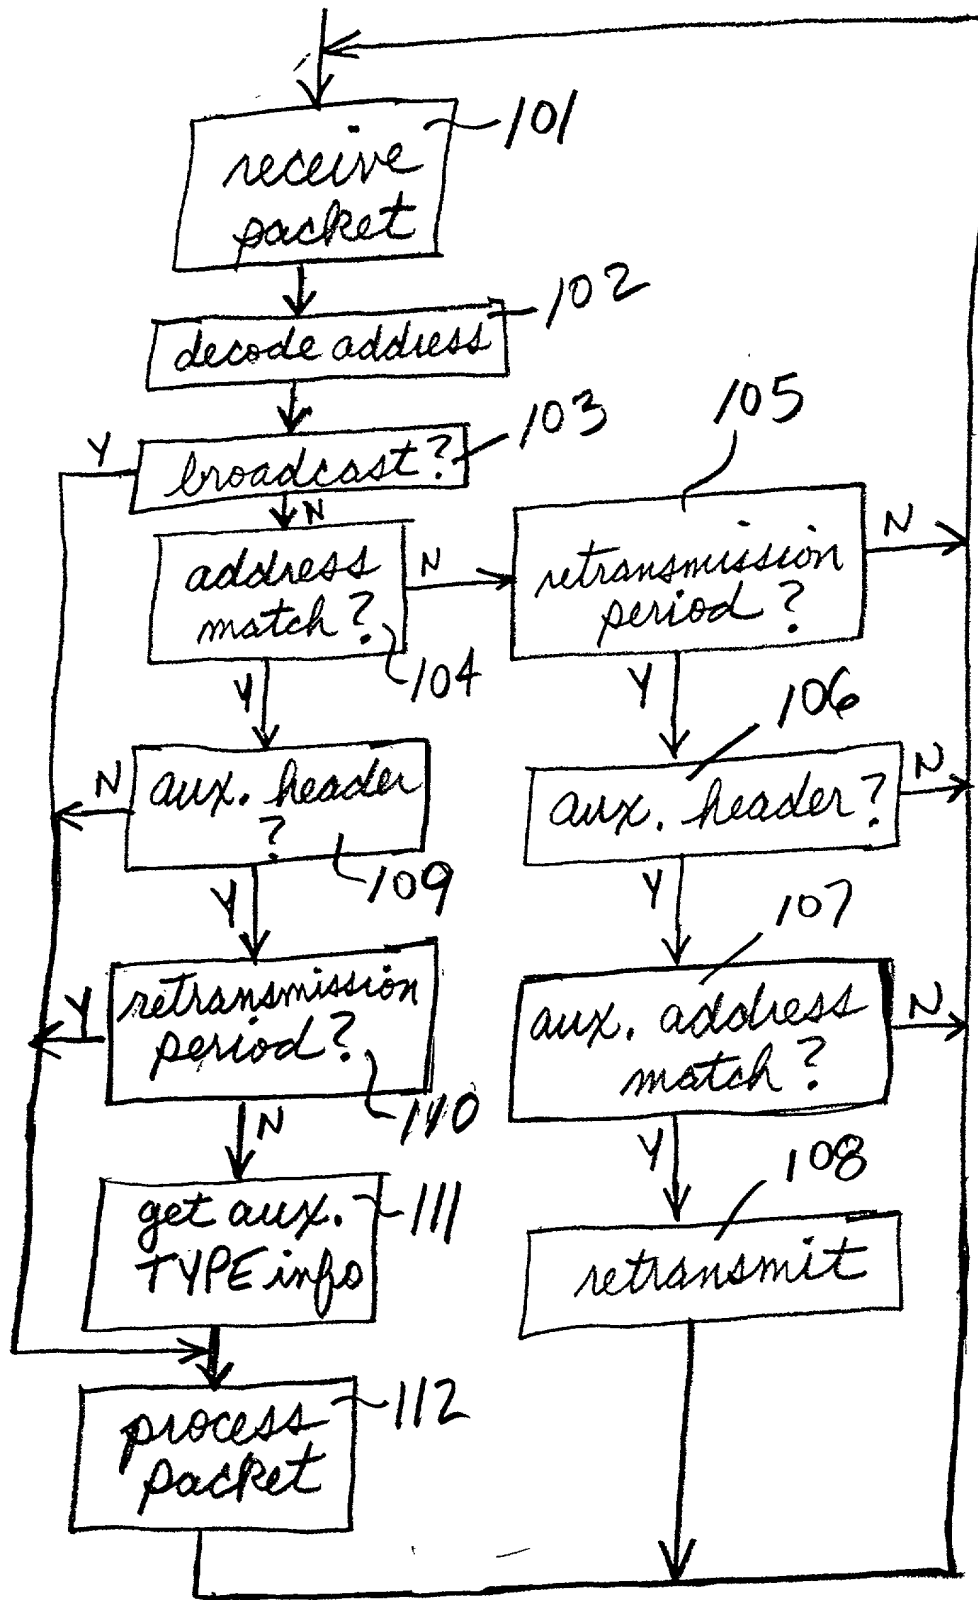 101
receive
packet
102
decode address
103
Y
broadcast?
N
105
address
match?
N
104
Y
retransmission
period?
N
Y
106
aux. header
?
N
109
Y
aux. header?
N
Y
107
retransmission
period?
Y
110
N
aux. address
match?
N
Y
108
get aux.
TYPE info
111
retransmit
process
packet
112